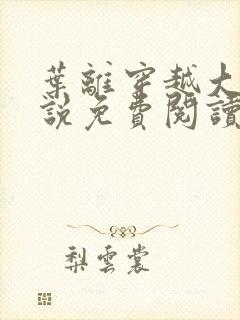 葉離穿越大
說免費閱讀
梨雲裳